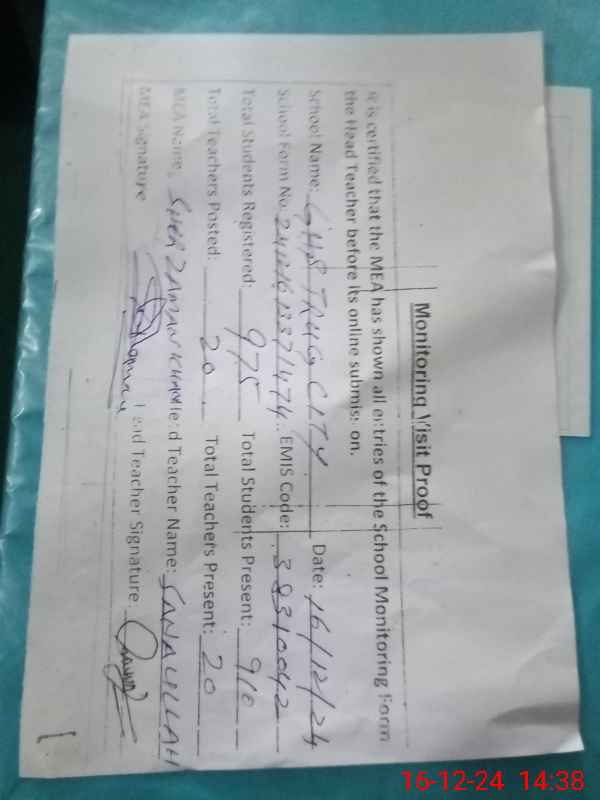 Monitoring Visit Proof
It is certified that the MEA has shown all entries of the School Monitoring Form
the Head Teacher before its online submission.
School Name: GHS TRUG CITY Date: 16/12/24
School Form No. EMIS Code: 38310042
Total Students Registered: 975 Total Students Present: 910
Total Teachers Posted: 20 Total Teachers Present: 20
MEA Name: SHER ZAMAN KHAN Head Teacher Name: SANAULLAH
MEA Signature Head Teacher Signature.
16-12-24 14:38